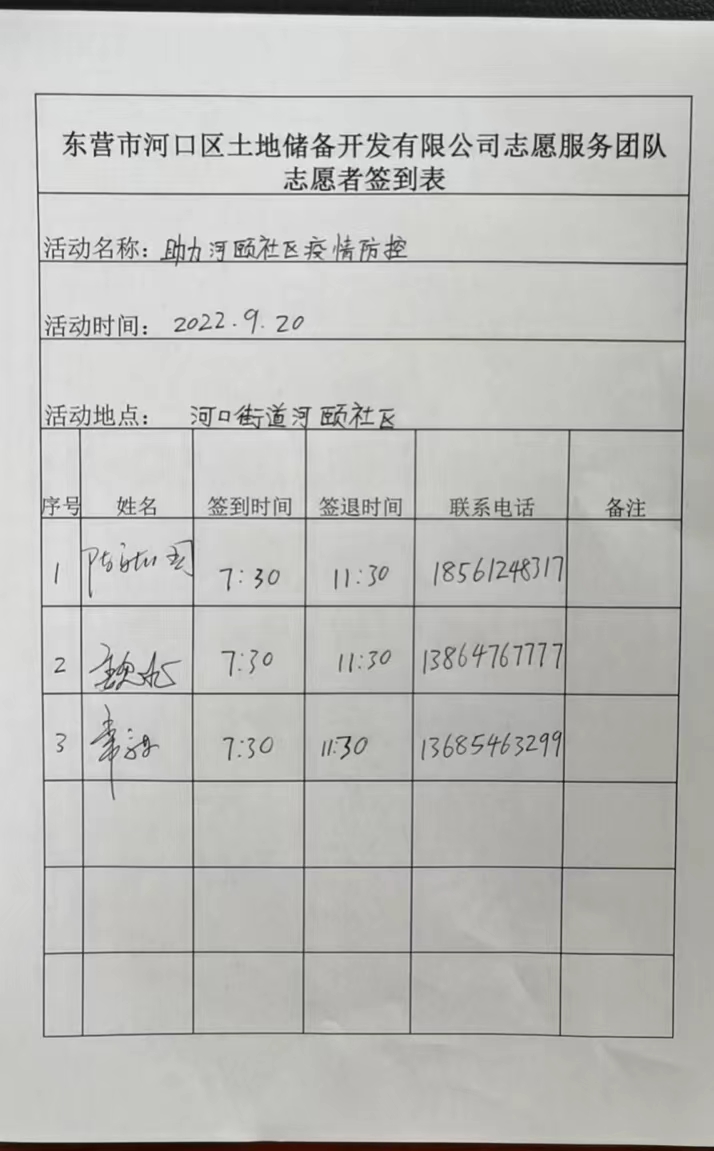 东营市河口区土地储备开发有限公司志愿服务团队
志愿者签到表
活动名称：助力河颐社区疫情防控
活动时间： 2022.9.20
活动地点： 河口街道河颐社区
序号 姓名 签到时间 签退时间 联系电话 备注
1 7:30 11:30 18561248317
2 7:30 11:30 13864767777
3 7:30 11:30 13685463299